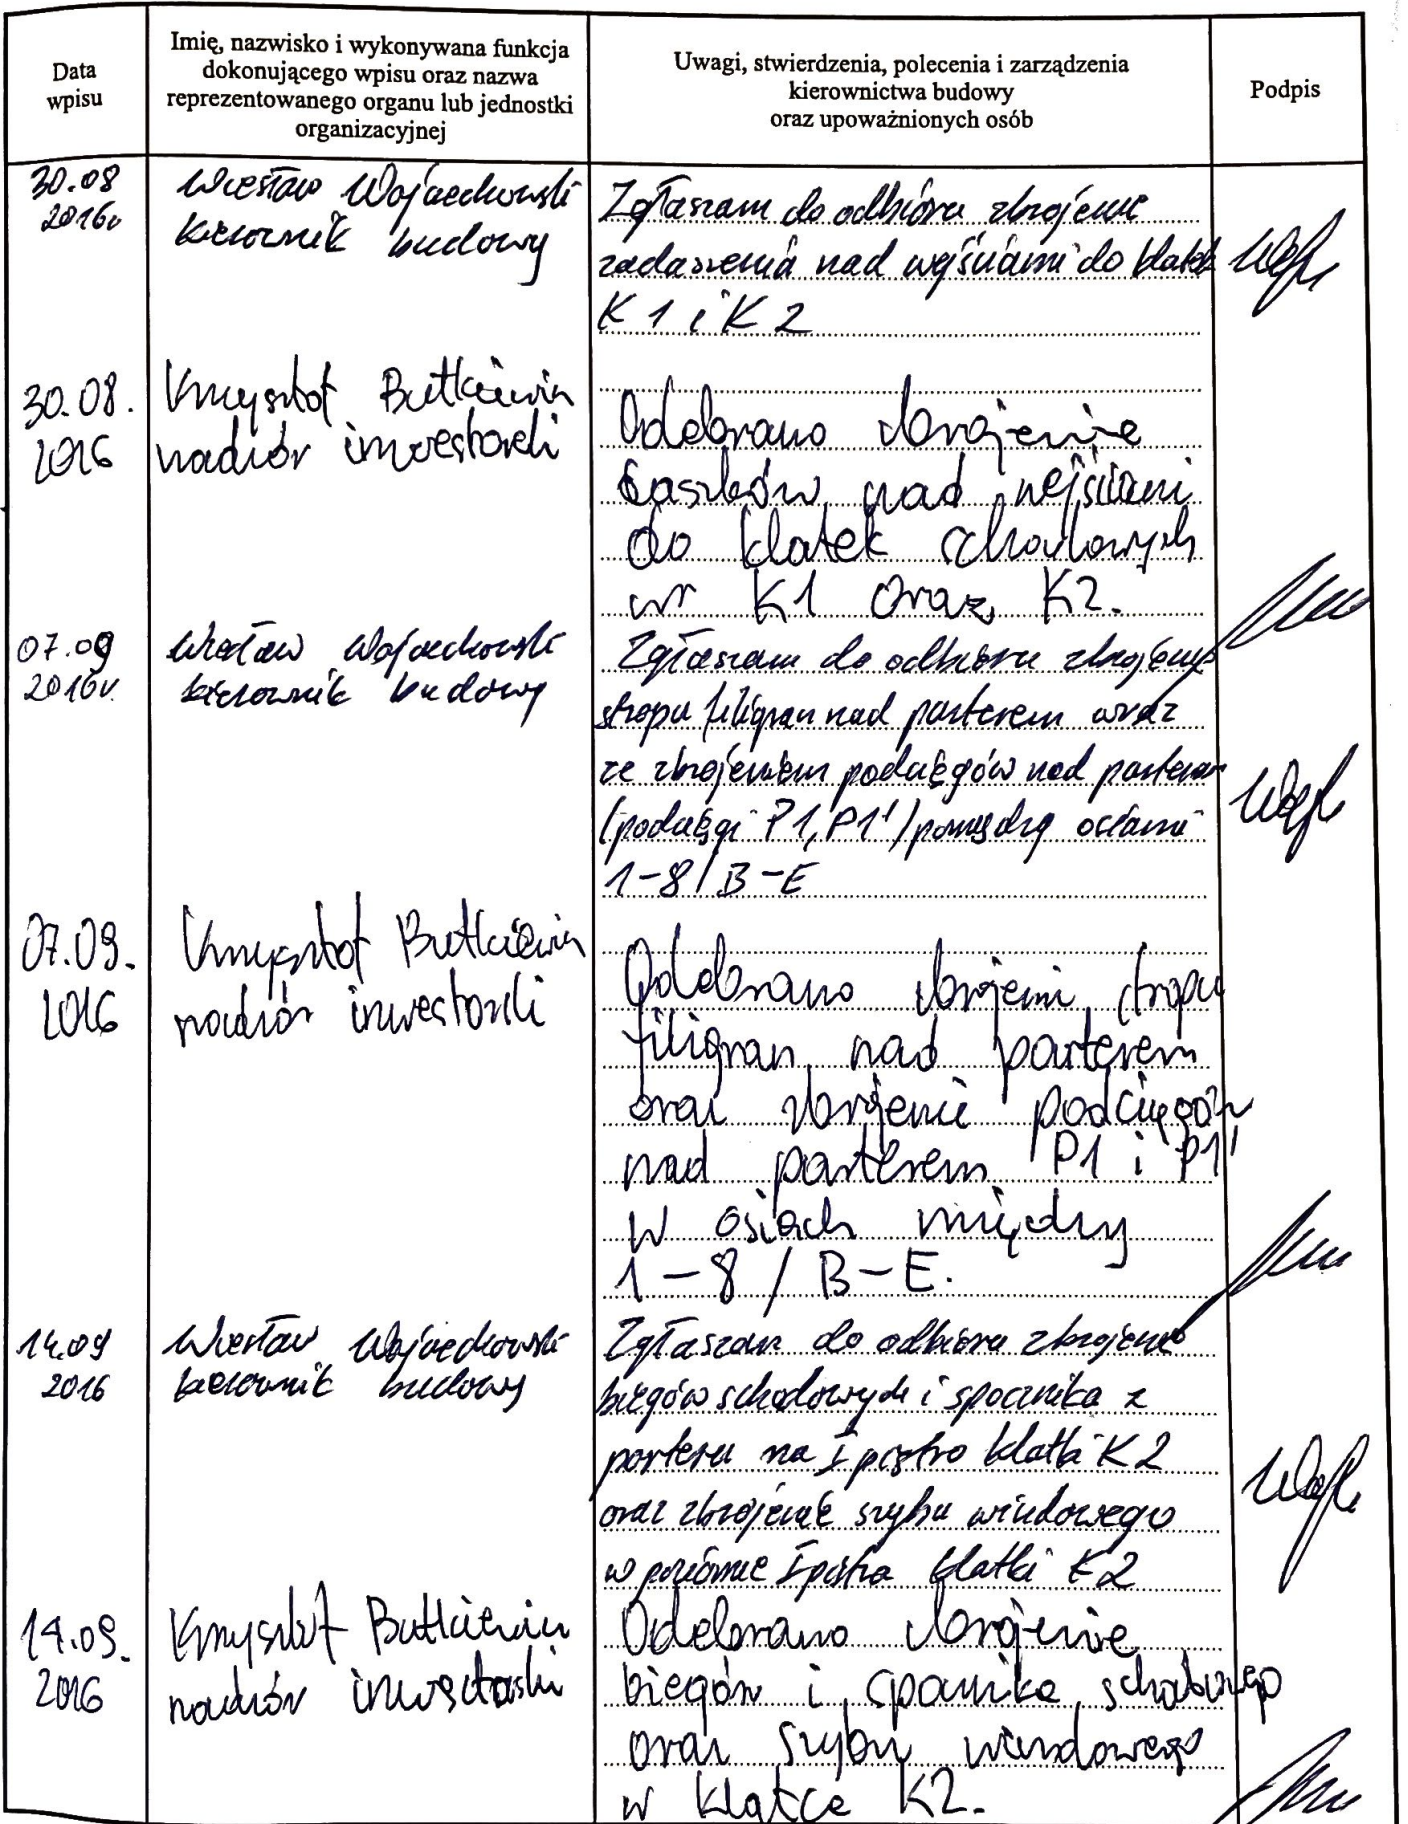 Data
wpisu
Imię, nazwisko i wykonywana funkcja
dokonującego wpisu oraz nazwa
reprezentowanego organu lub jednostki
organizacyjnej
Uwagi, stwierdzenia, polecenia i zarządzenia
kierownictwa budowy
oraz upoważnionych osób
Podpis
30.08
2016r
Wiesław Wojciechowski
kierownik budowy
Zgłaszam do odbioru zbrojenie
zadaszenia nad wejściami do klatek
K1 i K2
30.08.
2016
Krzysztof Butkiewicz
nadzór inwestorski
Odebrano zbrojenie
daszków nad wejściami
do klatek schodowych
nr K1 oraz K2.
07.09
2016r.
Wiesław Wojciechowski
kierownik budowy
Zgłaszam do odbioru zbrojenie
stropu filigran nad parterem wraz
ze zbrojeniem podciągów nad parterem
(podciągi P1, P1') pomiędzy osiami
1-8/B-E
07.09.
2016
Krzysztof Butkiewicz
nadzór inwestorski
Odebrano zbrojenie stropu
filigran nad parterem
oraz zbrojenie podciągów
nad parterem P1 i P1'
w osiach między
1-8 / B-E.
14.09
2016
Wiesław Wojciechowski
kierownik budowy
Zgłaszam do odbioru zbrojenie
biegów schodowych i spocznika z
parteru na I piętro klatki K2
oraz zbrojenie szybu windowego
w poziomie I piętra klatki K2
14.09.
2016
Krzysztof Butkiewicz
nadzór inwestorski
Odebrano zbrojenie
biegów i spocznika schodowego
oraz szybu windowego
w klatce K2.